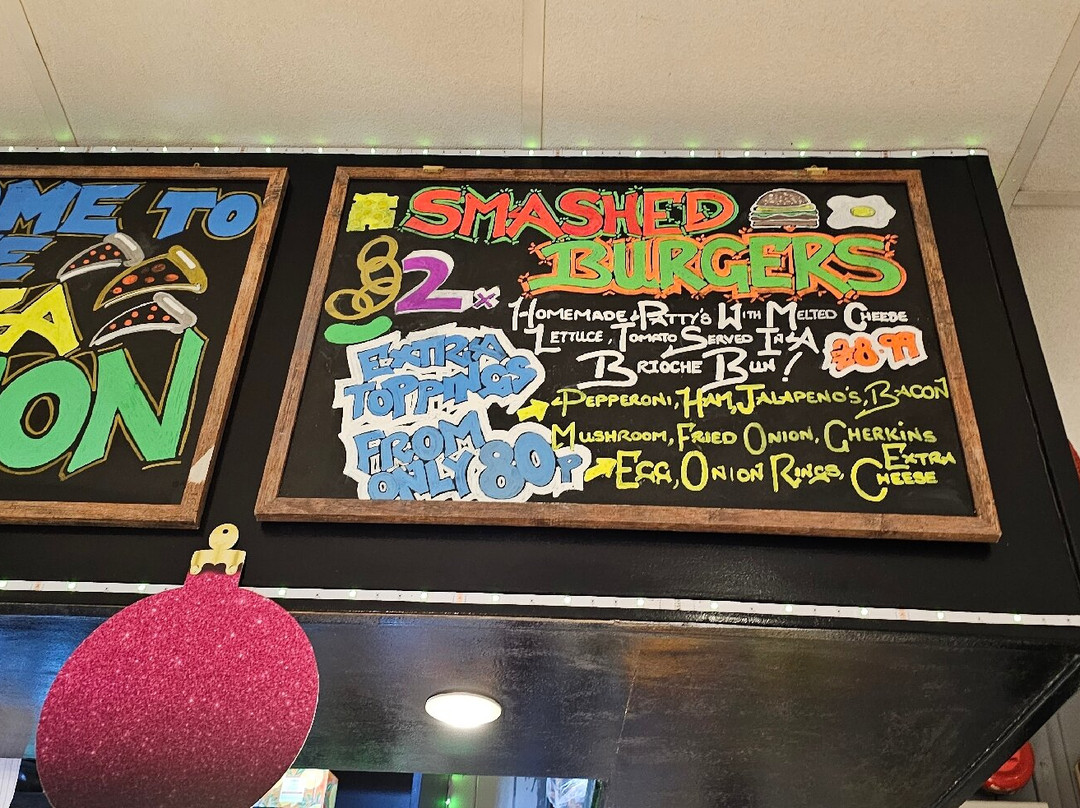 ME TO
E
A
ON
SMASHED
BURGERS
2x HOMEMADE PATTY'S WITH MELTED CHEESE
LETTUCE, TOMATO SERVED IN A
BRIOCHE BUN!
£8.99
EXTRA
TOPPINGS
FROM
ONLY 80p
PEPPERONI, HAM, JALAPENO'S, BACON
MUSHROOM, FRIED ONION, GHERKINS
EGG, ONION RINGS, EXTRA
CHEESE